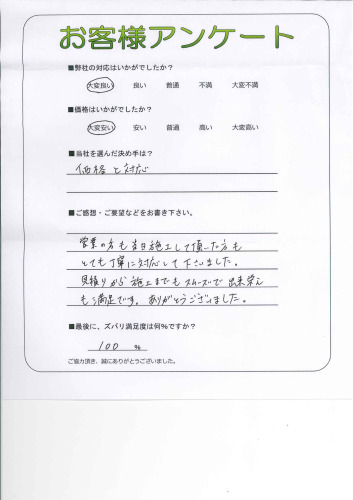 お客様アンケート
■弊社の対応はいかがでしたか？
大変良い 良い 普通 不満 大変不満
■価格はいかがでしたか？
大変安い 安い 普通 高い 大変高い
■当社を選んだ決め手は？
価格と対応
■ご感想・ご要望などをお書き下さい。
営業の方も当日施工して頂いた方も
とても丁寧に対応して下さいました。
見積りから施工までもスムーズで出来栄え
も満足です。ありがとうございました。
■最後に、ズバリ満足度は何％ですか？
100 ％
ご協力頂き、誠にありがとうございました。